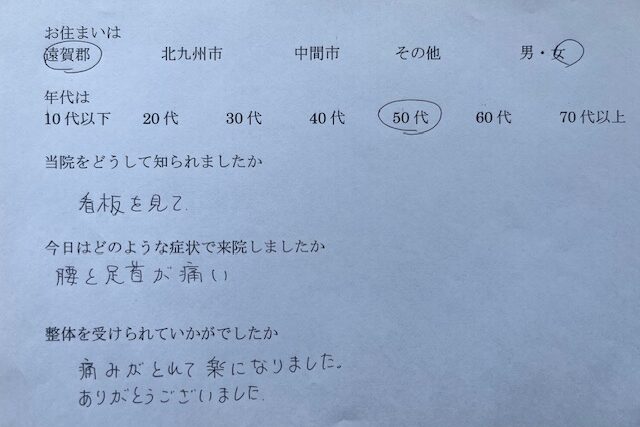 お住まいは
遠賀郡 北九州市 中間市 その他 男・女
年代は
10代以下 20代 30代 40代 50代 60代 70代以上
当院をどうして知られましたか
看板を見て.
今日はどのような症状で来院しましたか
腰と足首が痛い
整体を受けられていかがでしたか
痛みがとれて楽になりました。
ありがとうございました.